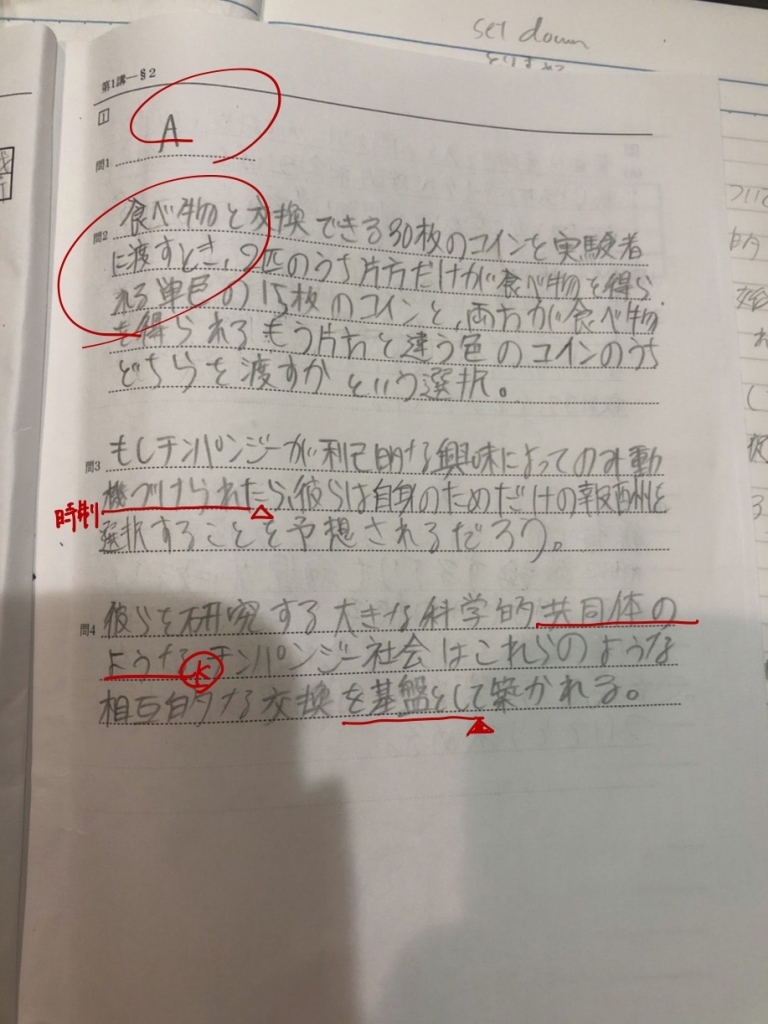 set down
第1講—§2
1
A
問1
問2 食べ物と交換できる30枚のコインを実験者
に渡すとき、2匹のうち片方だけが食べ物を得ら
れる単色の15枚のコインと、両方が食べ物
を得られるもう片方と違う色のコインのうち
どちらを渡すかという選択。
問3 もしチンパンジーが利己的な興味によってのみ動
機づけられたら、彼らは自身のためだけの報酬を
時制
選択することを予想されるだろう。
問4 彼らを研究する大きな科学的共同体の
ような チンパンジー社会はこれらのような
相互的な交換を基盤として築かれる。